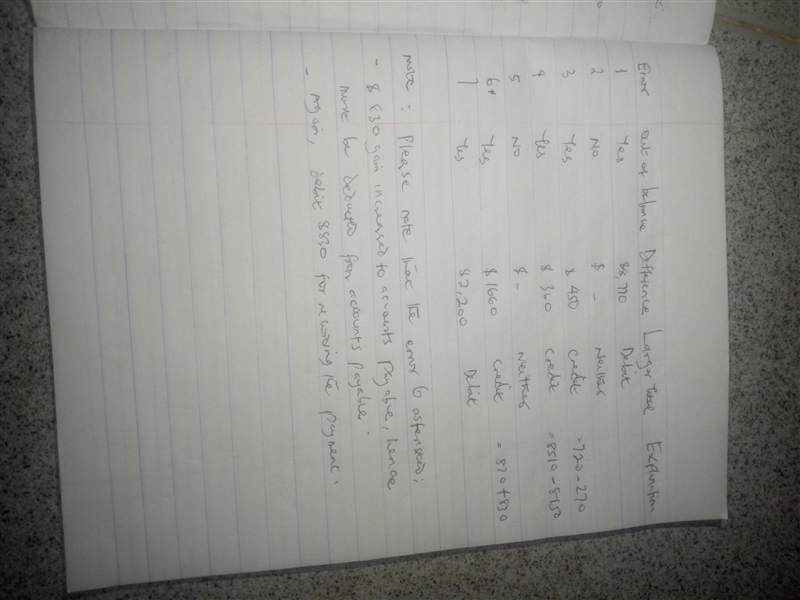 Error Out of balance Difference Larger total Explanation
1 Yes $8,770 Debit
2 NO $ - Neither
3 Yes $ 450 Credit =720-270
4 Yes $ 360 Credit =8510-8150
5 NO $ - Neither
6* Yes $ 1660 Credit =830+830
7 Yes $2,200 Debit
Note : Please note that the error 6
- $ 830 gain increased to accounts payable, hence
must be deducted from accounts payable.
- Again, debit $830 for recording the payment.